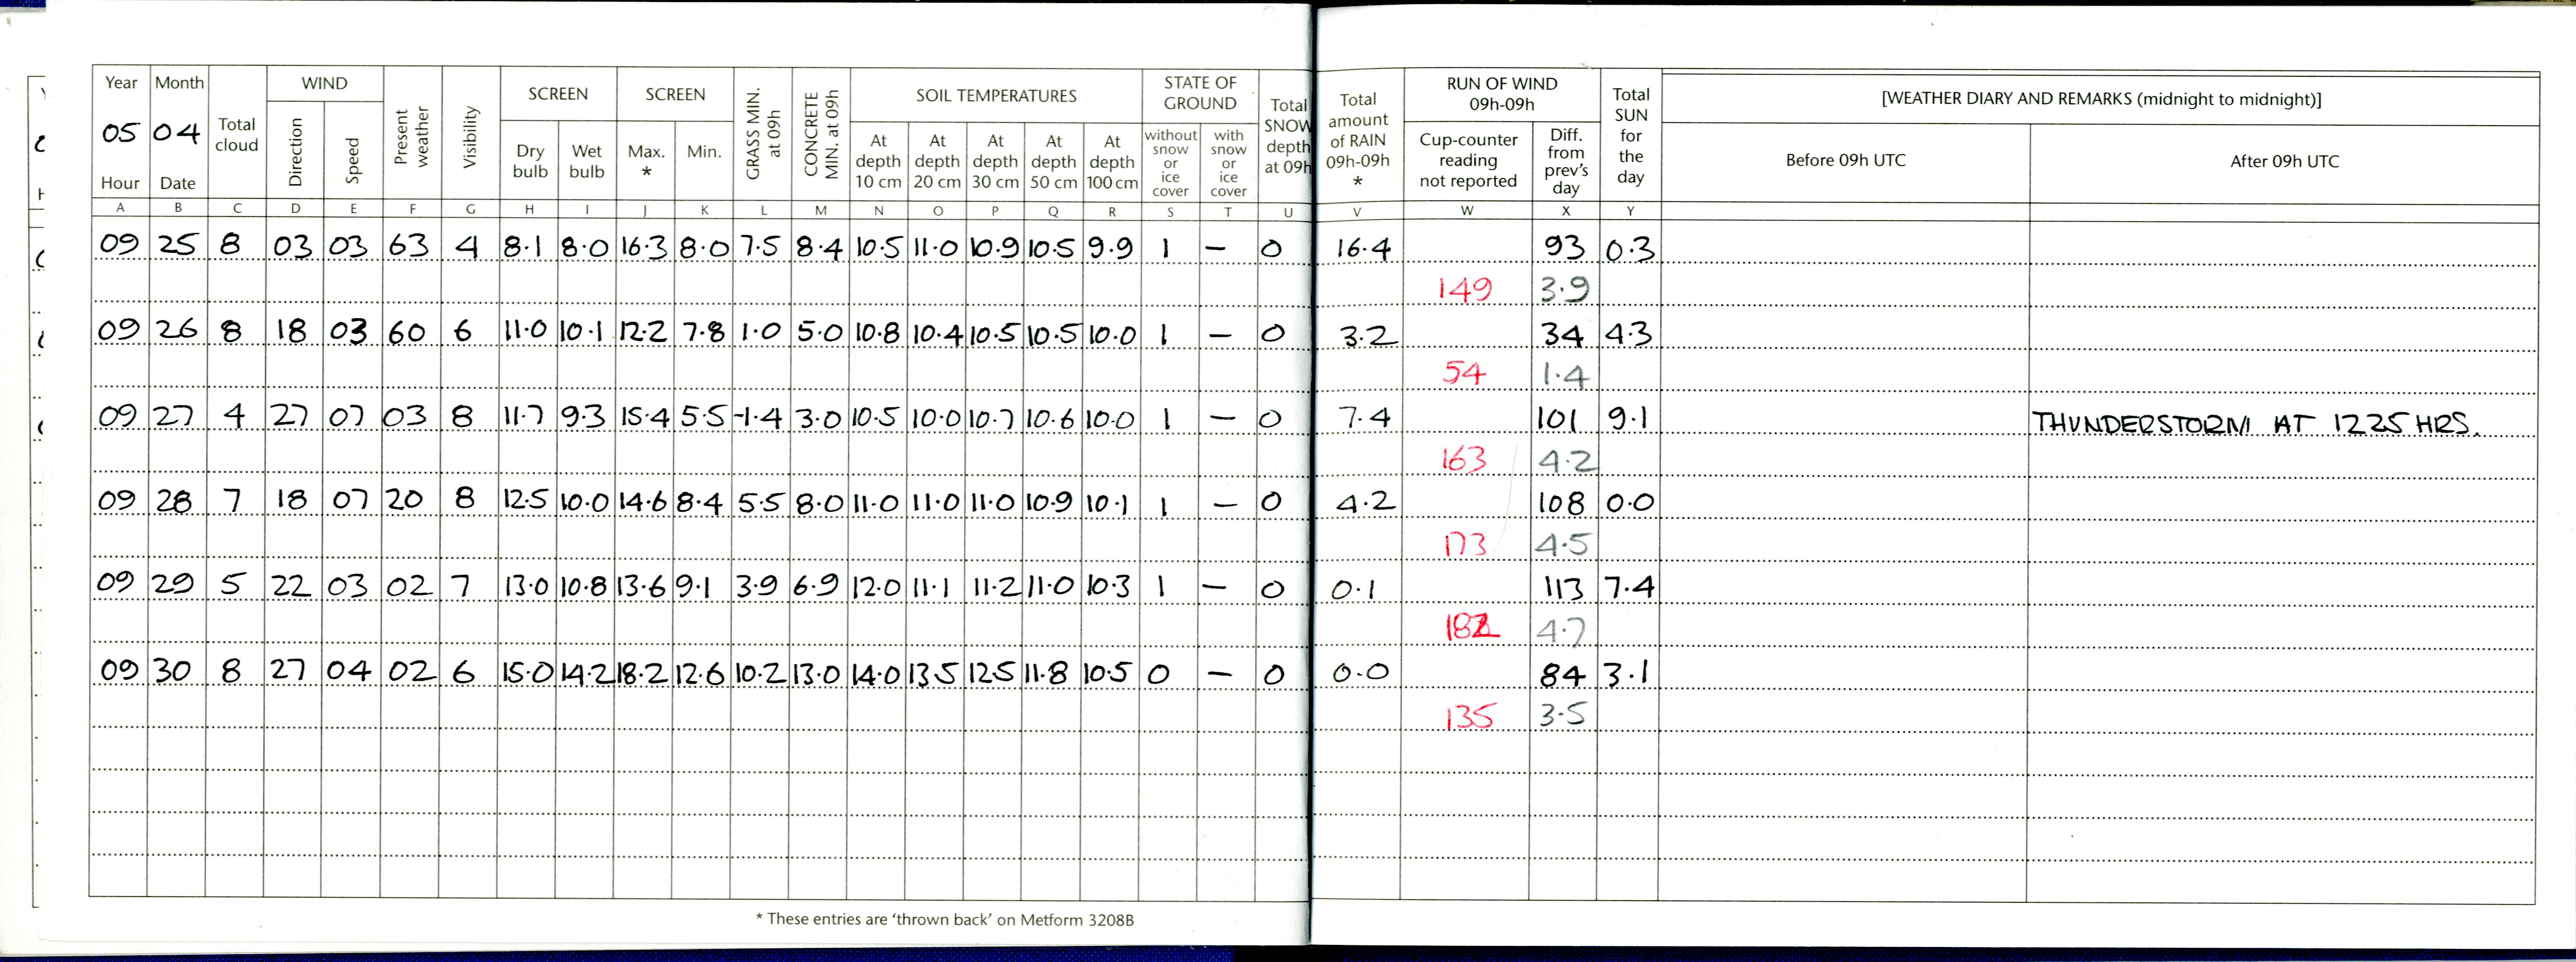 Year Month WIND SCREEN SCREEN SOIL TEMPERATURES STATE OF GROUND RUN OF WIND 09h-09h
05 04 Total cloud Direction Speed Present weather Visibility Dry bulb Wet bulb Max. * Min. GRASS MIN. at 09h CONCRETE MIN. at 09h At depth 10 cm At depth 20 cm At depth 30 cm At depth 50 cm At depth 100 cm without snow or ice cover with snow or ice cover Total SNOW depth at 09h Total amount of RAIN 09h-09h * Cup-counter reading not reported Diff. from prev's day Total SUN for the day [WEATHER DIARY AND REMARKS (midnight to midnight)]
Hour Date Before 09h UTC After 09h UTC
A B C D E F G H I J K L M N O P Q R S T U V W X Y
09 25 8 03 03 63 4 8.1 8.0 16.3 8.0 7.5 8.4 10.5 11.0 10.9 10.5 9.9 1 – 0 16.4 93 0.3
149 3.9
09 26 8 18 03 60 6 11.0 10.1 12.2 7.8 1.0 5.0 10.8 10.4 10.5 10.5 10.0 1 – 0 3.2 34 4.3
54 1.4
09 27 4 27 07 03 8 11.7 9.3 15.4 5.5 -1.4 3.0 10.5 10.0 10.7 10.6 10.0 1 – 0 7.4 101 9.1 THUNDERSTORM AT 1225 HRS.
163 4.2
09 28 7 18 07 20 8 12.5 10.0 14.6 8.4 5.5 8.0 11.0 11.0 11.0 10.9 10.1 1 – 0 4.2 108 0.0
173 4.5
09 29 5 22 03 02 7 13.0 10.8 13.6 9.1 3.9 6.9 12.0 11.1 11.2 11.0 10.3 1 – 0 0.1 113 7.4
182 4.7
09 30 8 27 04 02 6 15.0 14.2 18.2 12.6 10.2 13.0 14.0 13.5 12.5 11.8 10.5 0 – 0 0.0 84 3.1
135 3.5
* These entries are 'thrown back' on Metform 3208B